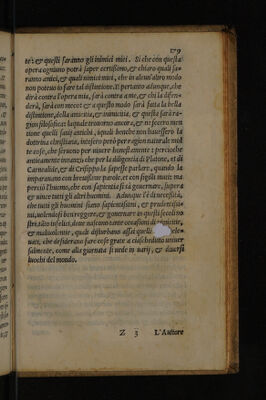 179
te: & questi saranno gli inimici miei. Si che con questa
opera ogniuno potrà saper certissimo, & chiaro quali sa-
ranno amici, & quali inimici miei, che in alcun'altro modo
non potevo io fare tal distintione. Il pertanto adunque, che
dirà contra l'opera mia, sarà contra a me, & chi la difen-
derà, sarà con meco: & a questo modo sarà fatta la bella
distintione, della amicitia, & inimicitia, & questa sarà ra-
gion filosofica: la quale trovorno ancora, & ne fecero men
tione quelli savij antichi, i quali benche non havessero la
dottrina christiana, intesero però per ragion naturale mol
te cose, che servono per vivere honestamente: percioche
anticamente innanzi che per la diligenzia di Platone, et di
Carneade, & di Crisippo la sapesse parlare, quando la
imparavano con brevissime parole, et con segoli muti: ma
perciò l'huomo, che con sapientia si sà governare, supera
& vince tutti gli altri huomini. Adunque l'è di necessità,
che tutti gli huomini siano sapientissimi, & prudentissi-
mi, volendosi ben reggere, & governare in questi secoli no
stri, alli infelici, dove nascono tante occasioni di
& malivolentie, quale disturbano assai quelli
che desiderano fare cose grate a ciascheduno univer
salmente, come alla giornata si vede in varij, & diversi
luochi del mondo.
Z 3 L'Auttore